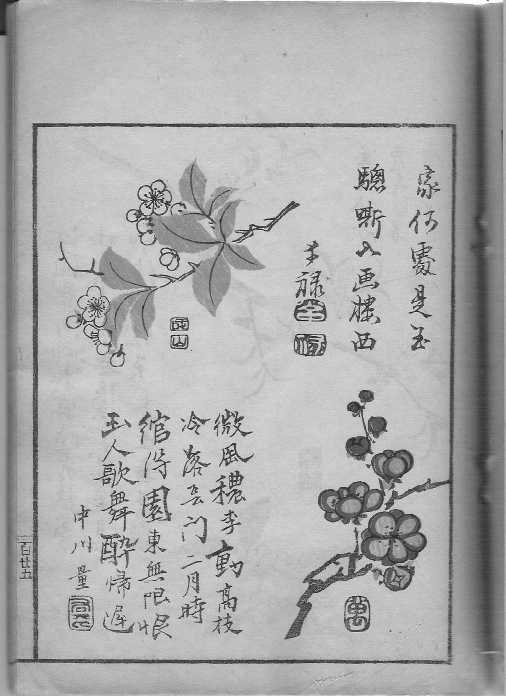 家何處是玉
驄嘶入画楼西
士禄
微風穠李動高枝
冷落吾门二月時
綰得園東無限恨
玉人歌舞醉帰遅
中川量
一百廿五